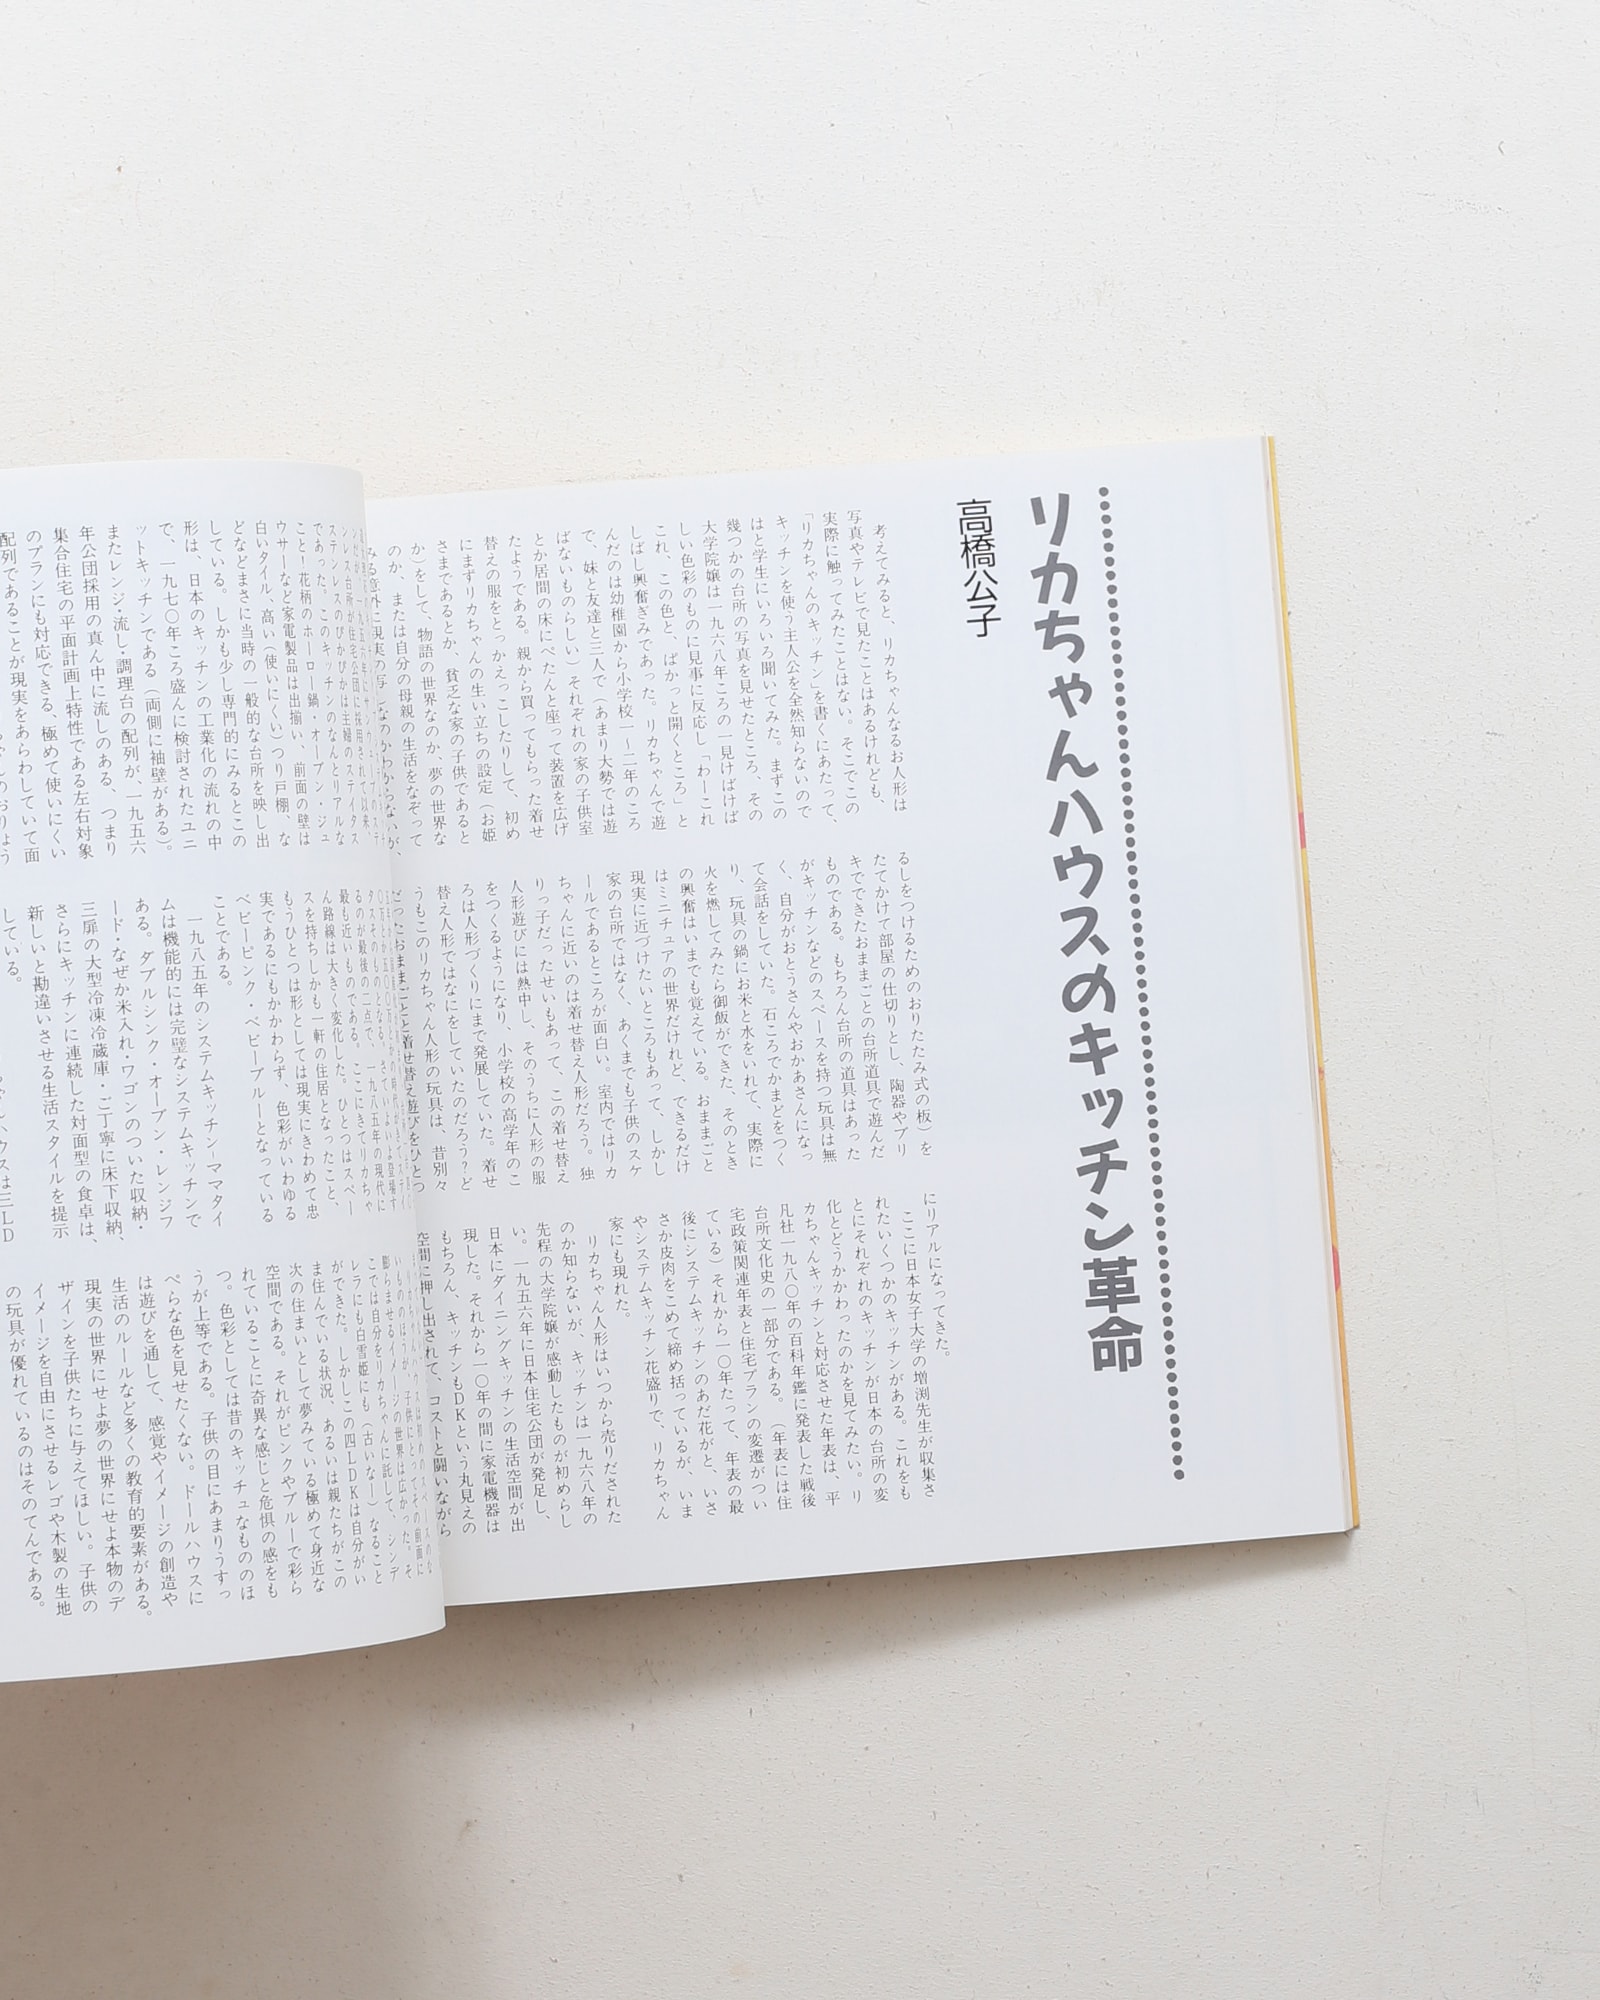 リカちゃんハウスのキッチン革命
高橋公子
考えてみると、リカちゃんなるお人形は
写真やテレビで見たことはあるけれども、
実際に触ってみたことはない。そこでこの
「リカちゃんのキッチン」を書くにあたって、
キッチンを使う主人公を全然知らないので
はと学生にいろいろ聞いてみた。まずこの
幾つかの台所の写真を見せたところ、その
大学院嬢は一九六八年ころの一見けばけば
しい色彩のものに見事に反応し「わーこれ
これ、この色と、ぱかっと開くところ」と
しばし興奮ぎみであった。リカちゃんで遊
んだのは幼稚園から小学校一〜二年のころ
で、妹と友達と三人で(あまり大勢では遊
ばないものらしい)それぞれの家の子供室
とか居間の床にぺたんと座って装置を広げ
たようである。親から買ってもらった着せ
替えの服をとっかえっこしたりして、初め
にまずリカちゃんの生い立ちの設定(お姫
さまであるとか、貧乏な家の子供であると
か)をして、物語の世界なのか、夢の世界な
のか、または自分の母親の生活をなぞって
るしをつけるためのおりたたみ式の板)を
たてかけて部屋の仕切りとし、陶器やブリ
キでできたおままごとの台所道具で遊んだ
ものである。もちろん台所の道具はあった
がキッチンなどのスペースを持つ玩具は無
く、自分がおとうさんやおかあさんになっ
て会話をしていた。石ころでかまどをつく
り、玩具の鍋にお米と水をいれて、実際に
火を燃してみたら御飯ができた、そのとき
の興奮はいまでも覚えている。おままごと
はミニチュアの世界だけれど、できるだけ
現実に近づけたいところもあって、しかし
家の台所ではなく、あくまでも子供のスケ
ールであるところが面白い。室内ではリカ
ちゃんに近いのは着せ替え人形だろう。独
りっ子だったせいもあって、この着せ替え
人形遊びには熱中し、そのうちに人形の服
をつくるようになり、小学校の高学年のこ
ろは人形づくりにまで発展していた。着せ
替え人形ではなにをしていたのだろう?ど
うもこのリカちゃん人形の玩具は、昔別々
だったおままごとと着せ替え遊びをひとつ
にリアルになってきた。
ここに日本女子大学の増渕先生が収集さ
れたいくつかのキッチンがある。これをも
とにそれぞれのキッチンが日本の台所の変
化とどうかかわったのかを見てみたい。リ
カちゃんキッチンと対応させた年表は、平
凡社一九八〇年の百科年鑑に発表した戦後
台所文化史の一部分である。(年表には住
宅政策関連年表と住宅プランの変遷がつい
ている)それから一〇年たって、年表の最
後にシステムキッチンのあだ花がと、いさ
さか皮肉をこめて締め括っているが、いま
やシステムキッチン花盛りで、リカちゃん
家にも現れた。
リカちゃん人形はいつから売りだされた
のか知らないが、キッチンは一九六八年の
先程の大学院嬢が感動したものが初めらし
い。一九五六年に日本住宅公団が発足し、
日本にダイニングキッチンの生活空間が出
現した。それから一〇年の間に家電機器は
もちろん、キッチンもDKという丸見えの
空間に押し出されて、コストと闘いながら
ステンレスのぴかぴかは主婦のステイタス
であった。このキッチンのなんとリアルな
こと!花柄のホーロー鍋・オーブン・ジュ
ウサーなど家電製品は出揃い、前面の壁は
白いタイル、高い(使いにくい)つり戸棚、な
どなどまさに当時の一般的な台所を映し出
している。しかも少し専門的にみるとこの
形は、日本のキッチンの工業化の流れの中
で、一九七〇年ころ盛んに検討されたユニ
ットキッチンである(両側に袖壁がある)。
またレンジ・流し・調理台の配列が、一九五六
年公団採用の真ん中に流しのある、つまり
集合住宅の平面計画上特性である左右対象
のプランにも対応できる、極めて使いにくい
配列であることが現実をあらわしていて面
タスそのものとなる。さていよいよ登場す
るのが最後の二点で、一九八五年の現代に
最も近いものである。ここにきてリカちゃ
ん路線は大きく変化した。ひとつはスペー
スを持ちしかも一軒の住居となったこと、
もうひとつは形としては現実にきわめて忠
実であるにもかかわらず、色彩がいわゆる
ベビーピンク・ベビーブルーとなっている
ことである。
一九八五年のシステムキッチンーマタイ
ムは機能的には完璧なシステムキッチンで
ある。ダブルシンク・オーブン・レンジフ
ード・なぜか米入れ・ワゴンのついた収納・
三扉の大型冷凍冷蔵庫・ご丁寧に床下収納、
さらにキッチンに連続した対面型の食卓は、
新しいと勘違いさせる生活スタイルを提示
している。
膨らませるイメージの世界は広かった。そ
こでは自分をリカちゃんに託して、シンデ
レラにも白雪姫にも(古いなー)なること
ができた。しかしこの四LDKは自分がい
ま住んでいる状況、あるいは親たちがこの
次の住まいとして夢みている極めて身近な
空間である。それがピンクやブルーで彩ら
れていることに奇異な感じと危惧の感をも
つ。色彩としては昔のキッチュなもののほ
うが上等である。子供の目にあまりうすっ
ぺらな色を見せたくない。ドールハウスに
は遊びを通して、感覚やイメージの創造や
生活のルールなど多くの教育的要素がある。
現実の世界にせよ夢の世界にせよ本物のデ
ザインを子供たちに与えてほしい。子供の
イメージを自由にさせるレゴや木製の生地
の玩具が優れているのはそのてんである。